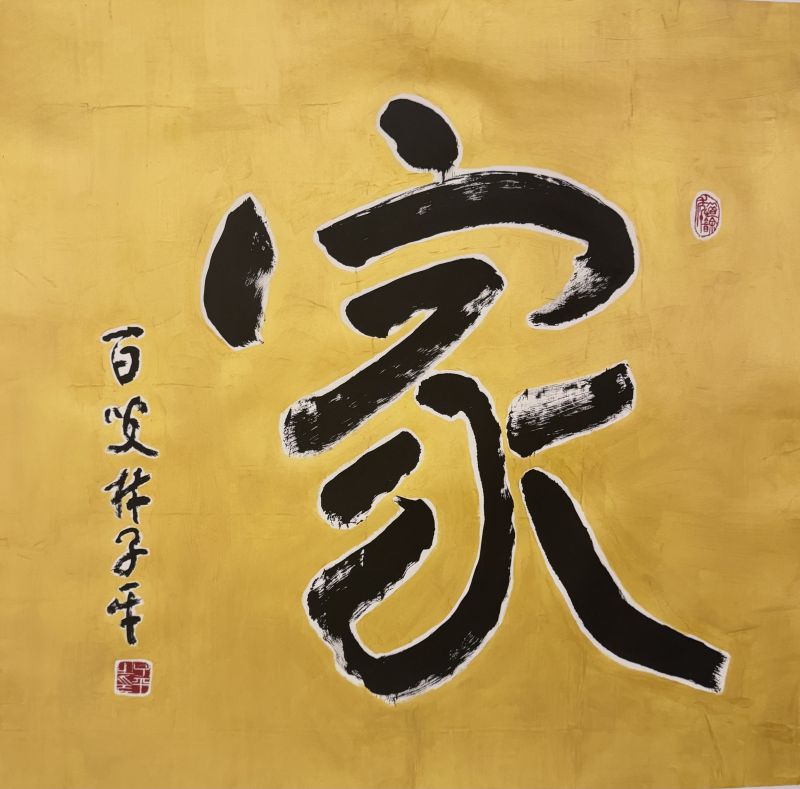 家
百叟林子平